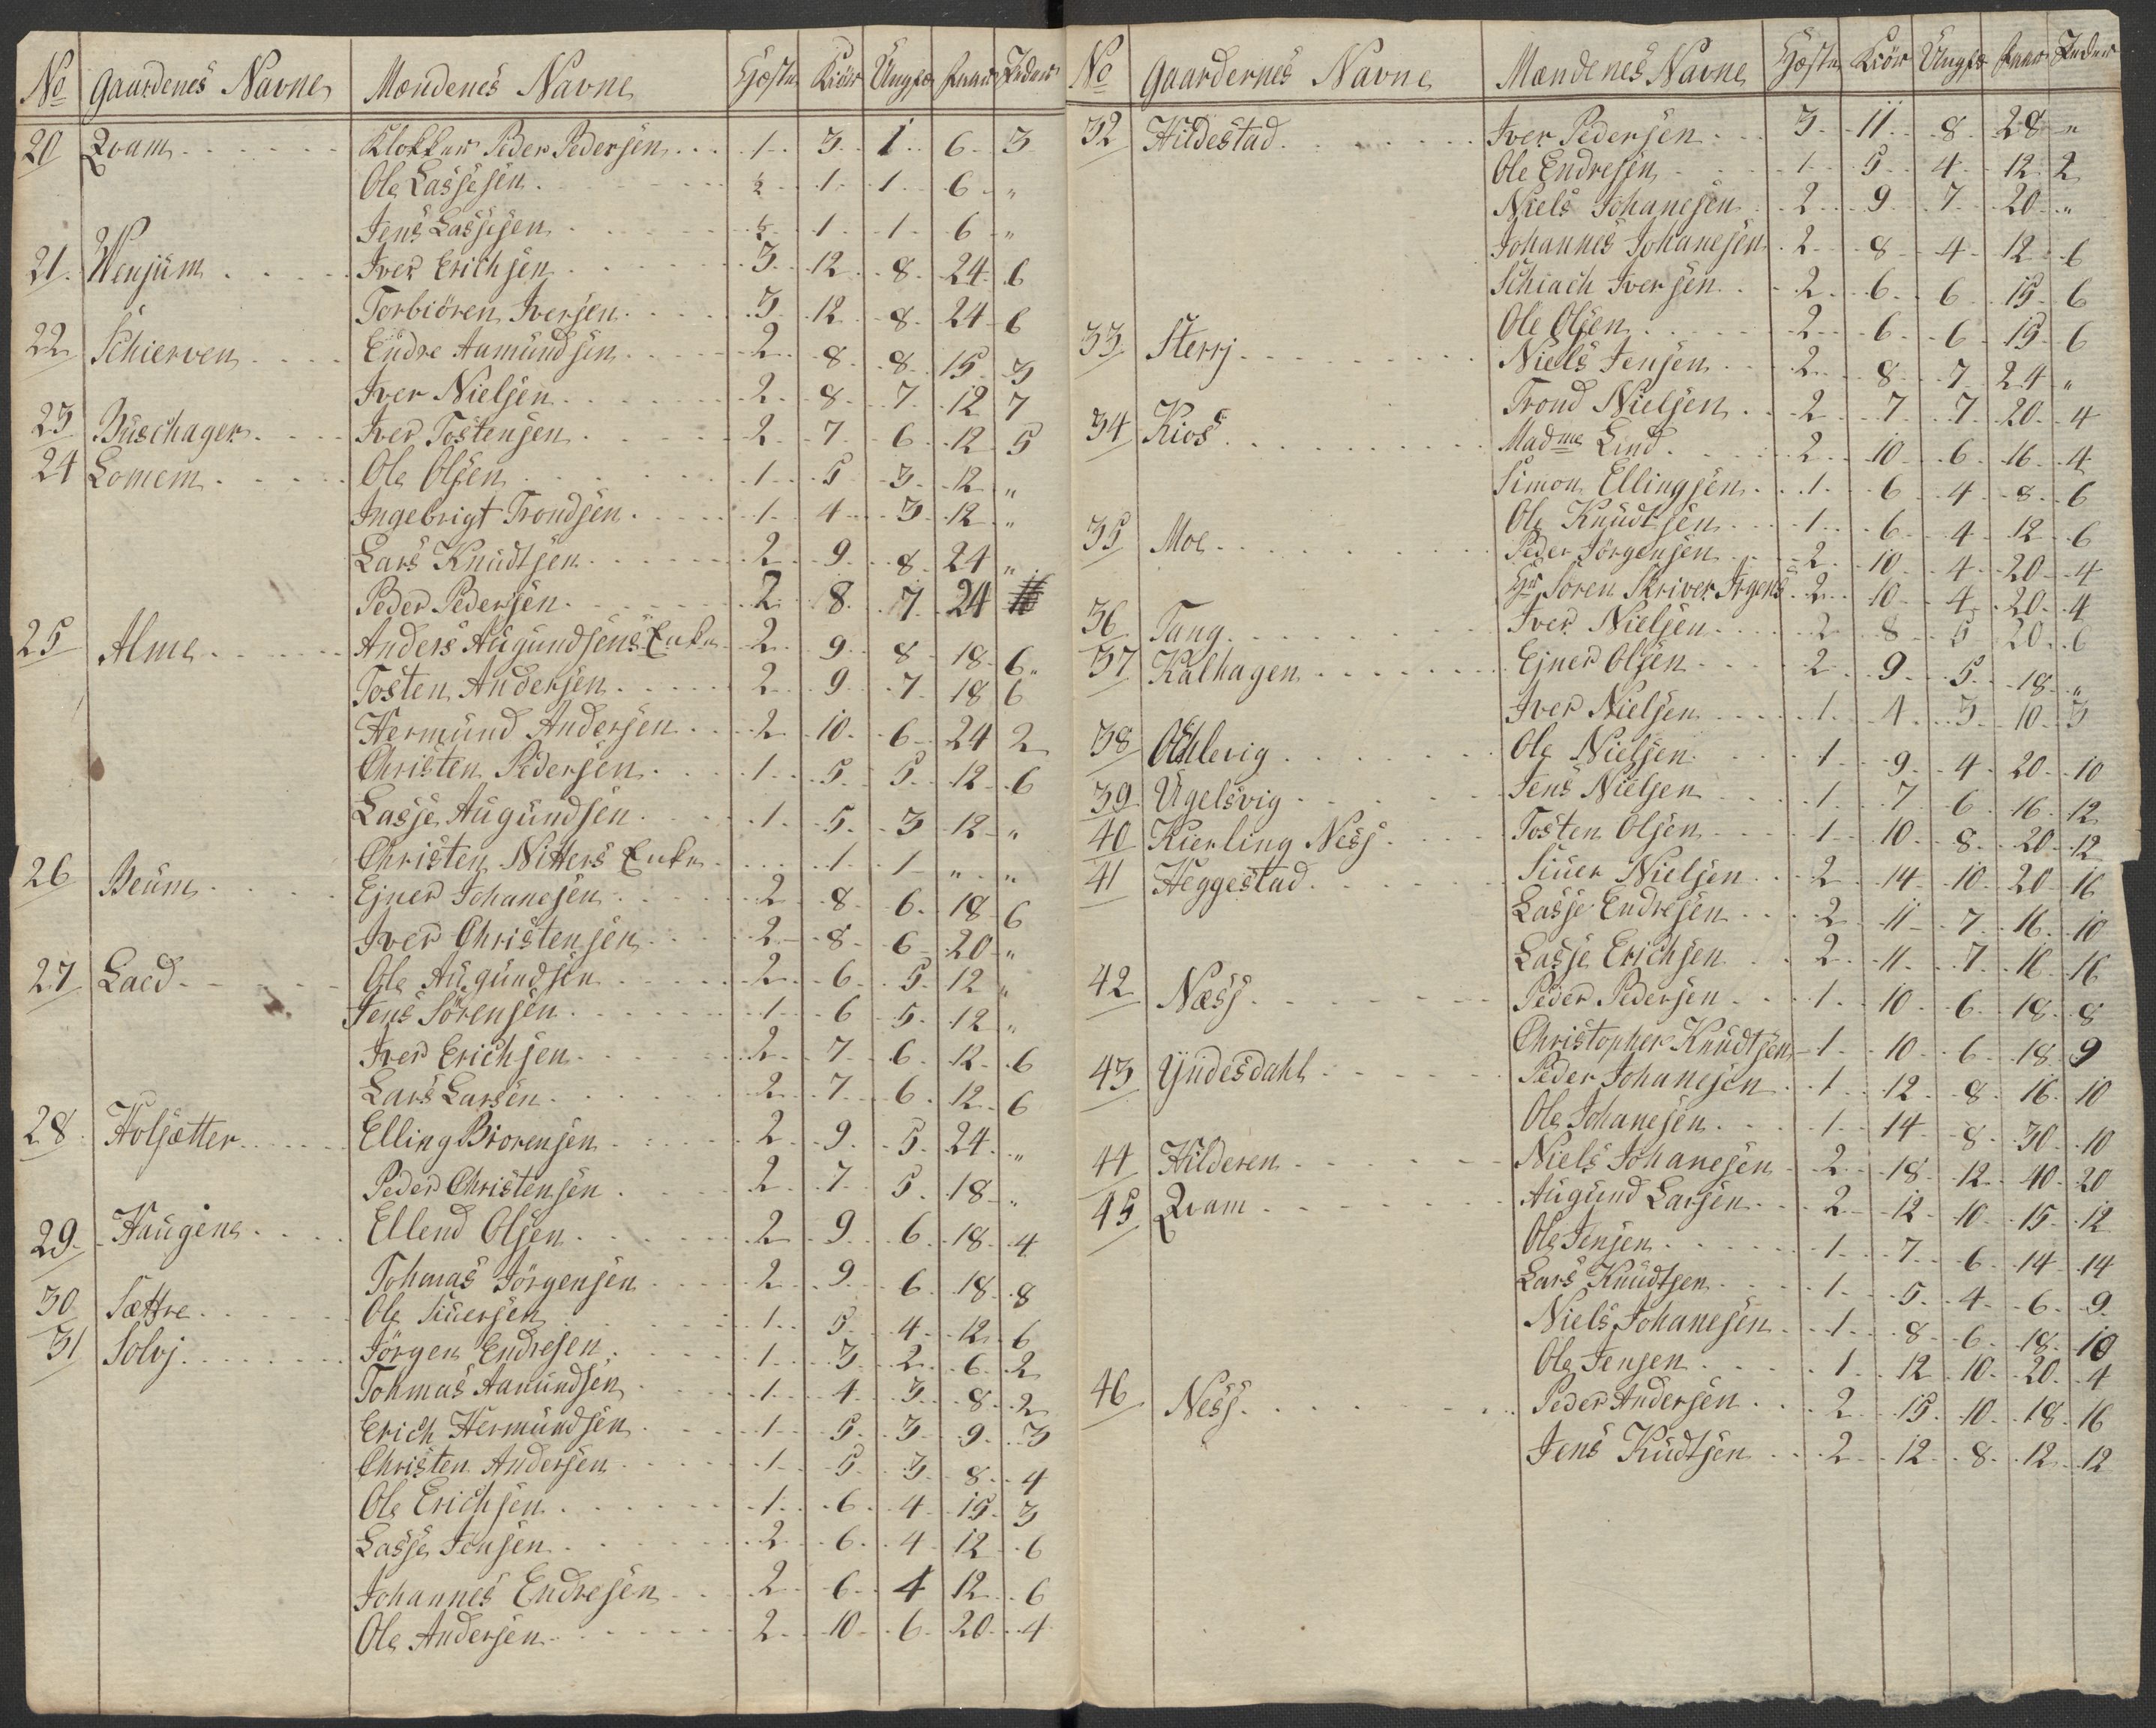 No Gaardenes Navne Mændenes Navne Hæste Kiör Ungfæ Faar Geder
20 Qvam Klokker Peder Pedersen 1 3 1 6 3
Ole Lassesen ½ 1 1 6 "
Jens Lassesen ½ 1 1 6 "
21. Wenjum Iver Erichsen 3 12 8 24 6
Torbiören Iversen 3 12 8 24 6
22 Schierven Endre Aamundsen 2 8 8 15 3
Iver Nielsen 2 8 7 12 7
23 Buschagen Iver Tostensen 2 7 6 12 5
24 Lomem Ole Olsen 1 5 3 12 "
Ingebrigt Trondsen 1 4 3 12 "
Lars Knudtsen 2 9 8 24 "
Peder Pedersen 2 8 7 24
25 Alme Anders Augundsens Enke 2 9 8 18 6
Tosten Andersen 2 9 7 18 6
Hermund Andersen 2 10 6 24 2
Christen Pedersen 1 5 5 12 6
Lasse Augundsen 1 5 3 12 "
Christen Nitters Enke 1 1 " "
26 Beum Ejner Johanesen 2 8 6 18 6
Iver Christensen 2 8 6 20 "
27 Laed Ole Augundsen 2 6 5 12 "
Jens Sörensen 1 6 5 12 "
Iver Erichsen 2 7 6 12 6
Lars Larsen 2 7 6 12 6
28 Holsætter Elling Biorensen 2 9 5 24 "
Peder Christensen 2 7 5 18 "
29. Haugene Ellend Olsen 2 9 6 18 4
Tohmas Jörgensen 2 9 6 18 8
30 Sættre Ole Siuersen 1 5 4 12 6
31 Solvj Jörgen Endresen 1 3 2 6 2
Tohmas Aamundsen 1 4 3 8 2
Erich Hermundsen 1 5 3 9 3
Christen Andersen 1 5 3 8 4
Ole Erichsen 1 6 4 15 3
Lasse Jensen 2 6 4 12 6
Johannes Endresen 2 6 4 12 6
Ole Andersen 2 10 6 20 4
No Gaardernes Navne Mændenes Navne Hæste Kiör Ungfæ Faar Geder
32 Hildestad Iver Pedersen 3 11 8 28 "
Ole Endresen 1 5 4 12 2
Niels Johanesen 2 9 7 20 "
Johannes Johanesen 2 8 4 12 6
Schiach Iversen 2 6 6 15 6
Ole Olsen 2 6 6 15 6
33 Sterrj Niels Jensen 2 8 7 24 "
Trond Nielsen 2 7 7 20 4
34 Kios Madme Lind 2 10 6 16 4
Simon Ellingsen 1 6 4 8 6
Ole Knudtsen 1 6 4 12 6
35 Moe Peder Jörgensen 2 10 4 20 4
Hr Sören Skriver Irgens 2 10 4 20 4
36 Tang Iver Nielsen 2 8 5 20 6
37 Kalhagen Ejner Olsen 2 9 5 18 "
Iver Nielsen 1 4 3 10 3
38 Ohlevig Ole Nielsen 1 9 4 20 10
39 Ugelsvig Jens Nielsen 1 7 6 16 12
40 Kierling Ness Tosten Olsen 1 10 8 20 12
41 Heggestad Siuer Nielsen 2 14 10 20 16
Lasse Endresen 2 11 7 16 10
Lasse Erichsen 2 11 7 16 16
42 Næss Peder Pedersen 1 10 6 18 8
Christopher Knudtsen 1 10 6 18 9
43 Yndesdahl Peder Johanesen 1 12 8 16 10
Ole Johanesen 1 14 8 30 10
44 Hilderen Niels Johanesen 2 18 12 40 20
45 Qvam Augund Larsen 2 12 10 15 12
Ole Jensen 1 7 6 14 14
Lars Knudtsen 1 5 4 6 9
Niels Johanesen 1 8 6 18 10
Ole Jensen 1 12 10 20 4
46 Ness Peder Andersen 2 15 10 18 16
Jens Kudtsen 2 12 8 12 12